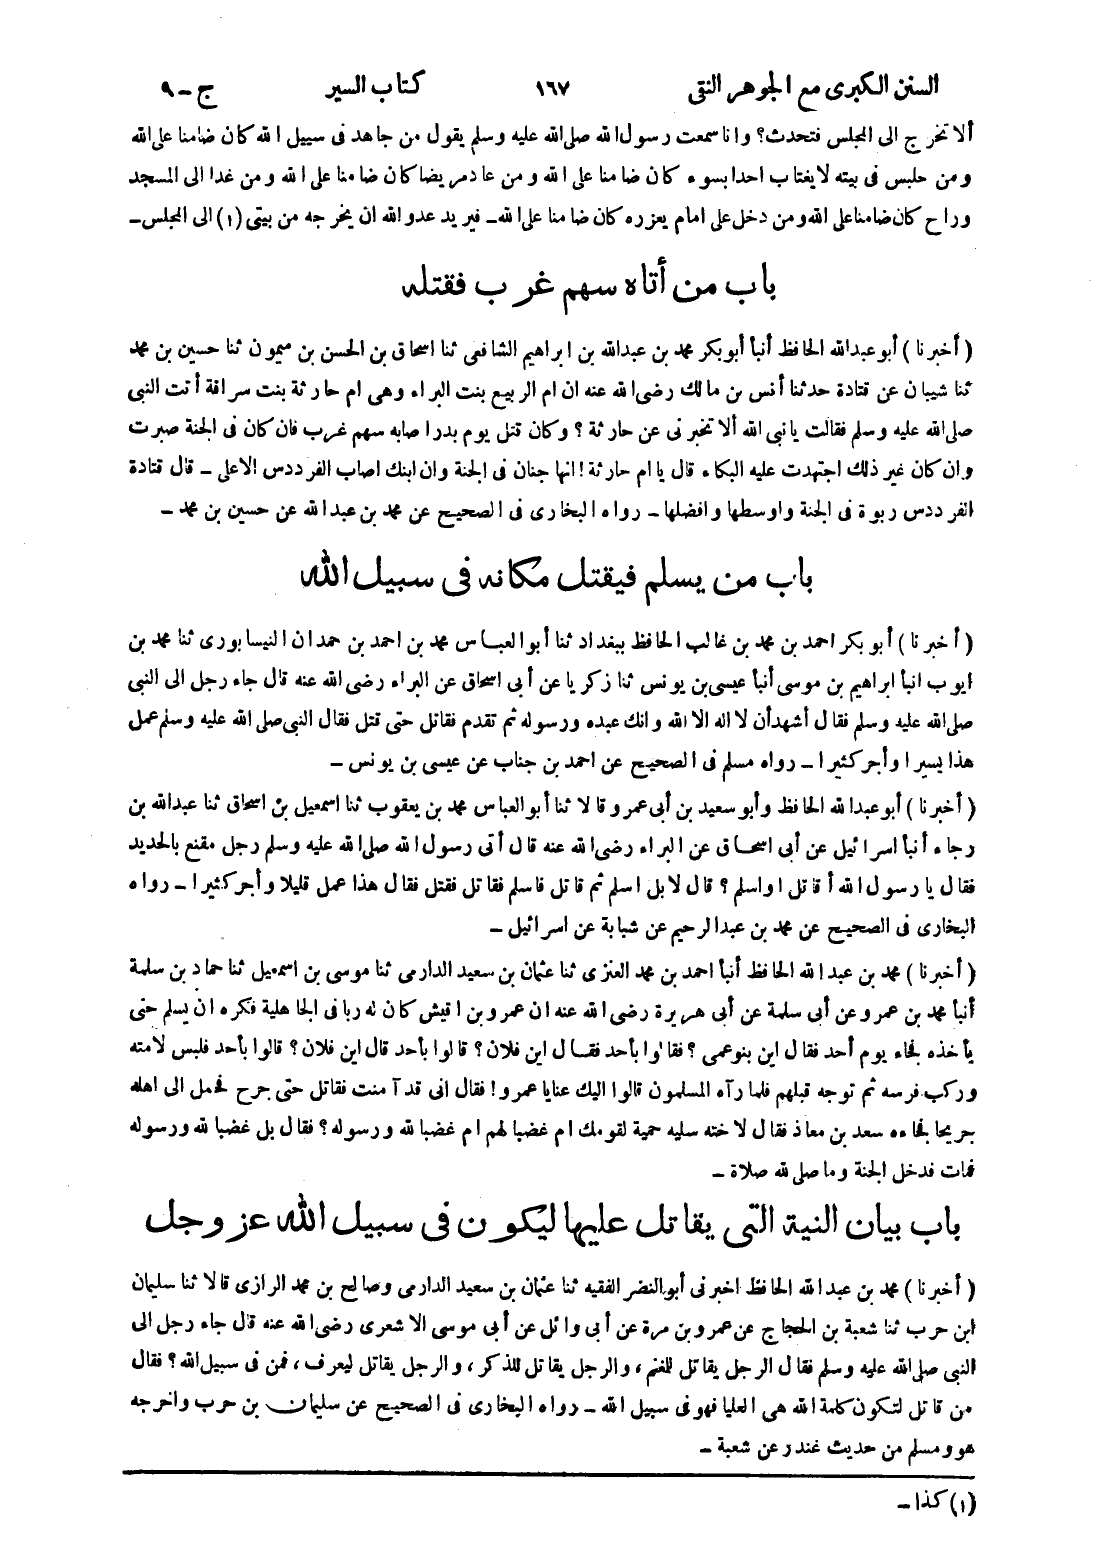 السنن الكبرى مع الجوهر النقى ١٦٧ كتاب السير ج - ٩
ألا تخرج الى المجلس فتحدث؟ وانا سمعت رسول الله صلى الله عليه وسلم يقول من جاهد فى سبيل الله كان ضامنا على الله
ومن جلس فى بيته لا يغتاب احدا بسوء كان ضامنا على الله ومن عاد مريضا كان ضامنا على الله ومن غدا الى المسجد
وراح كان ضامنا على الله ومن دخل على امام يعزره كان ضامنا على الله - فيريد عدو الله ان يخرجه من بيتى (١) الى المجلس -
باب من أتاه سهم غرب فقتله
(أخبرنا) أبو عبدالله الحافظ أنبأ أبو بكر محمد بن عبدالله بن ابراهيم الشافعى ثنا اسحاق بن الحسن بن ميمون ثنا حسين بن محمد
ثنا شيبان عن قتادة حدثنا أنس بن مالك رضى الله عنه ان ام الربيع بنت البراء وهى ام حارثة بنت سراقة أتت النبى
صلى الله عليه وسلم فقالت يا نبى الله ألا تخبرنى عن حارثة؟ وكان قتل يوم بدر اصابه سهم غرب فان كان فى الجنة صبرت
وان كان غير ذلك اجتهدت عليه البكاء قال يا ام حارثة! انها جنان فى الجنة وان ابنك اصاب الفردوس الاعلى - قال قتادة
الفردوس ربوة فى الجنة واوسطها وافضلها - رواه البخارى فى الصحيح عن محمد بن عبدالله عن حسين بن محمد -
باب من يسلم فيقتل مكانه فى سبيل الله
(أخبرنا) أبو بكر احمد بن محمد بن غالب الحافظ ببغداد ثنا أبو العباس محمد بن احمد بن حمدان النيسابورى ثنا محمد بن
ايوب انبأ ابراهيم بن موسى أنبأ عيسى بن يونس ثنا زكريا عن أبى اسحاق عن البراء رضى الله عنه قال جاء رجل الى النبى
صلى الله عليه وسلم فقال أشهد أن لا اله الا الله وانك عبده ورسوله ثم تقدم فقاتل حتى قتل فقال النبى صلى الله عليه وسلم عمل
هذا يسيرا وأجر كثيرا - رواه مسلم فى الصحيح عن احمد بن جناب عن عيسى بن يونس -
(أخبرنا) أبو عبدالله الحافظ وأبو سعيد بن أبى عمرو قالا ثنا أبو العباس محمد بن يعقوب ثنا اسمعيل بن اسحاق ثنا عبدالله بن
رجاء أنبأ اسرائيل عن أبى اسحاق عن البراء رضى الله عنه قال أتى رسول الله صلى الله عليه وسلم رجل مقنع بالحديد
فقال يا رسول الله أقاتل او اسلم؟ قال لا بل اسلم ثم قاتل فاسلم فقاتل فقتل فقال هذا عمل قليلا وأجر كثيرا - رواه
البخارى فى الصحيح عن محمد بن عبدالرحيم عن شبابة عن اسرائيل -
(أخبرنا) محمد بن عبدالله الحافظ أنبأ احمد بن محمد العنزى ثنا عثمان بن سعيد الدارمى ثنا موسى بن اسمعيل ثنا حماد بن سلمة
أنبأ محمد بن عمرو عن أبى سلمة عن أبى هريرة رضى الله عنه ان عمرو بن اقيش كان له ربا فى الجاهلية فكره ان يسلم حتى
يأخذه فجاء يوم أحد فقال اين بنو عمى؟ فقالوا بأحد فقال اين فلان؟ قالوا بأحد قال اين فلان؟ قالوا بأحد فلبس لامته
وركب فرسه ثم توجه قبلهم فلما رآه المسلمون قالوا اليك عنا يا عمرو! فقال انى قد آمنت فقاتل حتى جرح فحمل الى اهله
جريحا فجاءه سعد بن معاذ فقال لاخته سليه حمية لقومك ام غضبا لهم ام غضبا لله ورسوله؟ فقال بل غضبا لله ورسوله
فمات فدخل الجنة وما صلى لله صلاة -
باب بيان النية التى يقاتل عليها ليكون فى سبيل الله عز وجل
(أخبرنا) محمد بن عبدالله الحافظ اخبرنى أبو النضر الفقيه ثنا عثمان بن سعيد الدارمى وصالح بن محمد الرازى قالا ثنا سليمان
ابن حرب ثنا شعبة بن الحجاج عن عمرو بن مرة عن أبى وائل عن أبى موسى الاشعرى رضى الله عنه قال جاء رجل الى
النبى صلى الله عليه وسلم فقال الرجل يقاتل للمغنم، والرجل يقاتل للذكر، والرجل يقاتل ليعرف، فمن فى سبيل الله؟ فقال
من قاتل لتكون كلمة الله هى العليا فهو فى سبيل الله - رواه البخارى فى الصحيح عن سليمان بن حرب واخرجه
هو ومسلم من حديث غندر عن شعبة -
(١) كذا -